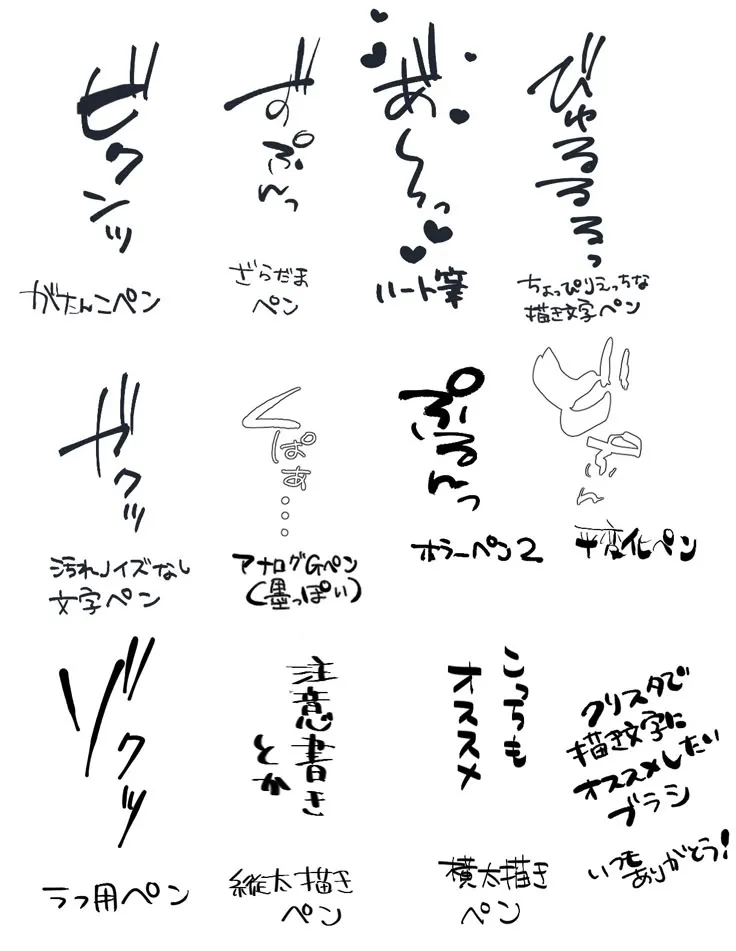 ビクンッ
がたんこペン
ずぷんっ
ざらだま
ペン
あ〜っ
ハート筆
びゅるるるっ
ちょっぴりえっちな
描き文字ペン
ガクッ
汚れノイズなし
文字ペン
くぱぁ…
アナログGペン
(墨っぽい)
ぷるんっ
ホラーペン2
変化ペン
ゾクッ
ラフ用ペン
注意書き
とか
縦太描き
ペン
こっちも
オススメ
横太描き
ペン
クリスタで
描き文字に
オススメしたい
ブラシ
いつも
ありがとう!